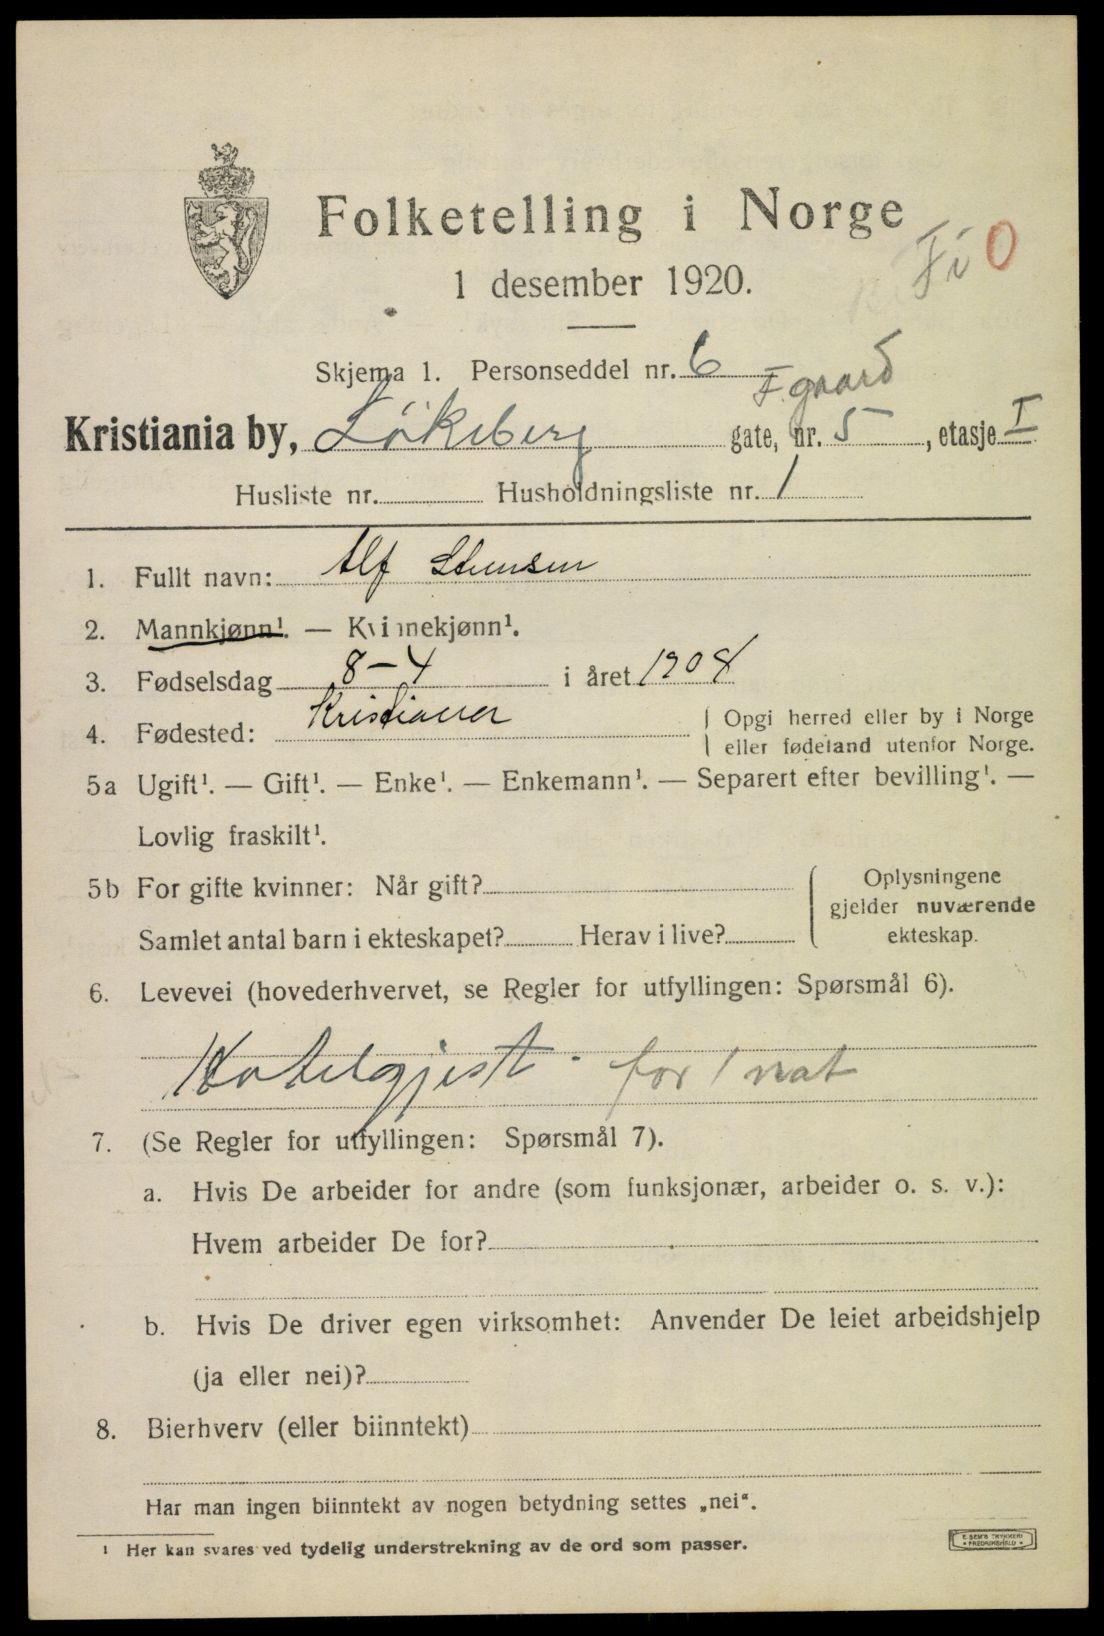 Folketelling i Norge
Fi 0
1 desember 1920.
Skjema 1. Personseddel nr. 6
F. gaard
Kristiania by, Løkeberg gate, nr. 5, etasje I
Husliste nr. Husholdningsliste nr. 1
1. Fullt navn: Alf Stensen
2. Mannkjønn¹. — Kvinnekjønn¹.
3. Fødselsdag 8-4 i året 1908
4. Fødested: Kristiania
Opgi herred eller by i Norge
eller fødeland utenfor Norge.
5a Ugift¹. — Gift¹. — Enke¹. — Enkemann¹. — Separert efter bevilling¹. —
Lovlig fraskilt¹.
5b For gifte kvinner: Når gift?
Samlet antal barn i ekteskapet? Herav i live?
Oplysningene
gjelder nuværende
ekteskap.
6. Levevei (hovederhvervet, se Regler for utfyllingen: Spørsmål 6).
Hotelgjest. for 1 nat
7. (Se Regler for utfyllingen: Spørsmål 7).
a. Hvis De arbeider for andre (som funksjonær, arbeider o. s. v.):
Hvem arbeider De for?
b. Hvis De driver egen virksomhet: Anvender De leiet arbeidshjelp
(ja eller nei)?
8. Bierhverv (eller biinntekt)
Har man ingen biinntekt av nogen betydning settes „nei“.
¹ Her kan svares ved tydelig understrekning av de ord som passer.
E. SEM'S TRYKKERI
• FREDRIKSHALD •